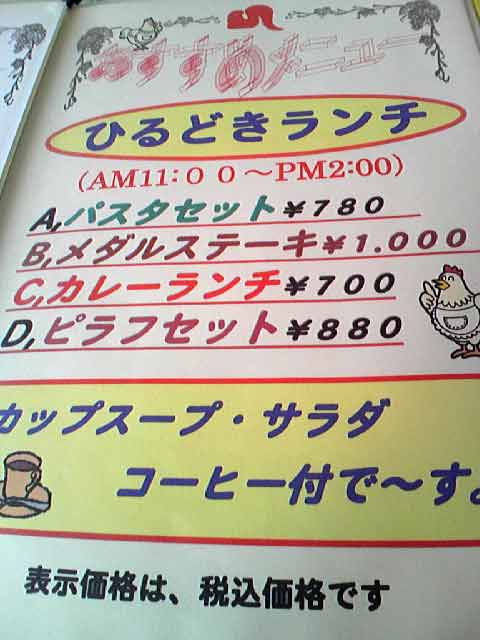 おすすめメニュー
ひるどきランチ
(AM11:００～PM2:00)
A,パスタセット￥７８０
B,メダルステーキ￥１.０００
C,カレーランチ￥７００
D,ピラフセット￥８８０
カップスープ・サラダ
コーヒー付で～す。
表示価格は、税込価格です